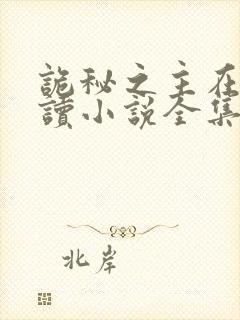 詭秘之主在
讀小說全集
北岸